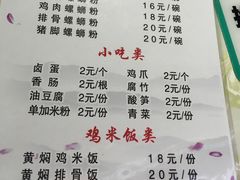 鸡肉螺蛳粉 16元/碗
排骨螺蛳粉 20元/碗
猪脚螺蛳粉 20元/碗
小吃类
卤蛋 2元/个 鸡爪 2元/个
香肠 2元/根 腐竹 2元/份
油豆腐 2元/份 酸笋 2元/份
单加米粉 2元/份 青菜 2元/份
鸡米饭类
黄焖鸡米饭 18元/份
黄焖排骨饭 20元/份